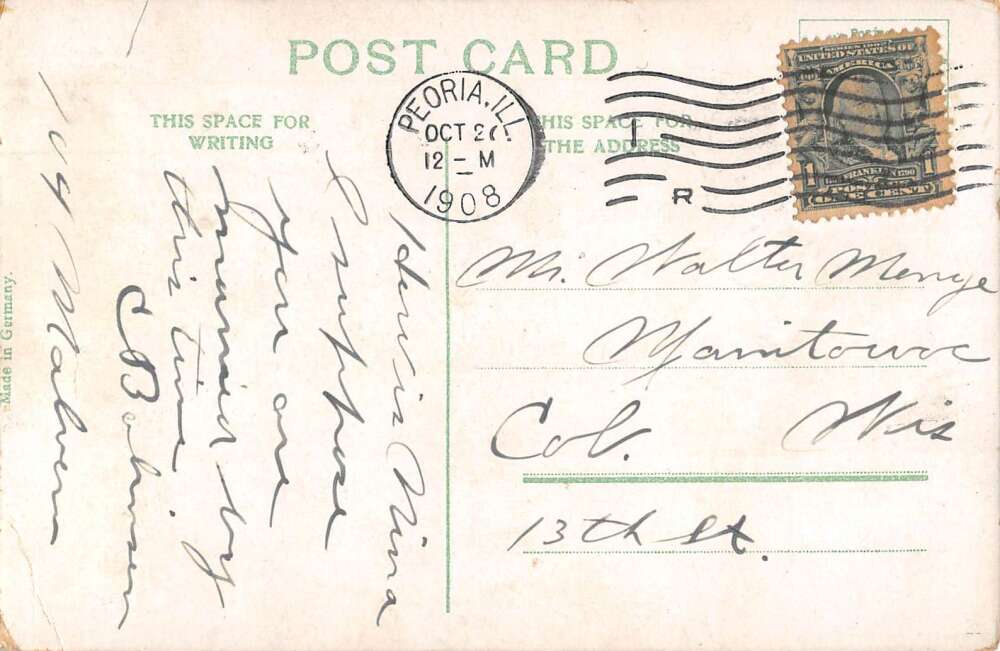 POST CARD
THIS SPACE FOR
WRITING
THIS SPACE FOR
THE ADDRESS
PEORIA, ILL.
OCT 2
12 - M
1908
R
SERIES 1902
UNITED STATES OF
AMERICA
FRANKLIN 1790
1 ONE CENT 1
Mr. Walter Menge
Manitowoc
Col. Wis
13th St.
Nina
I suppose
you are
married by
this time.
C B
109 Malvern
Made in Germany.